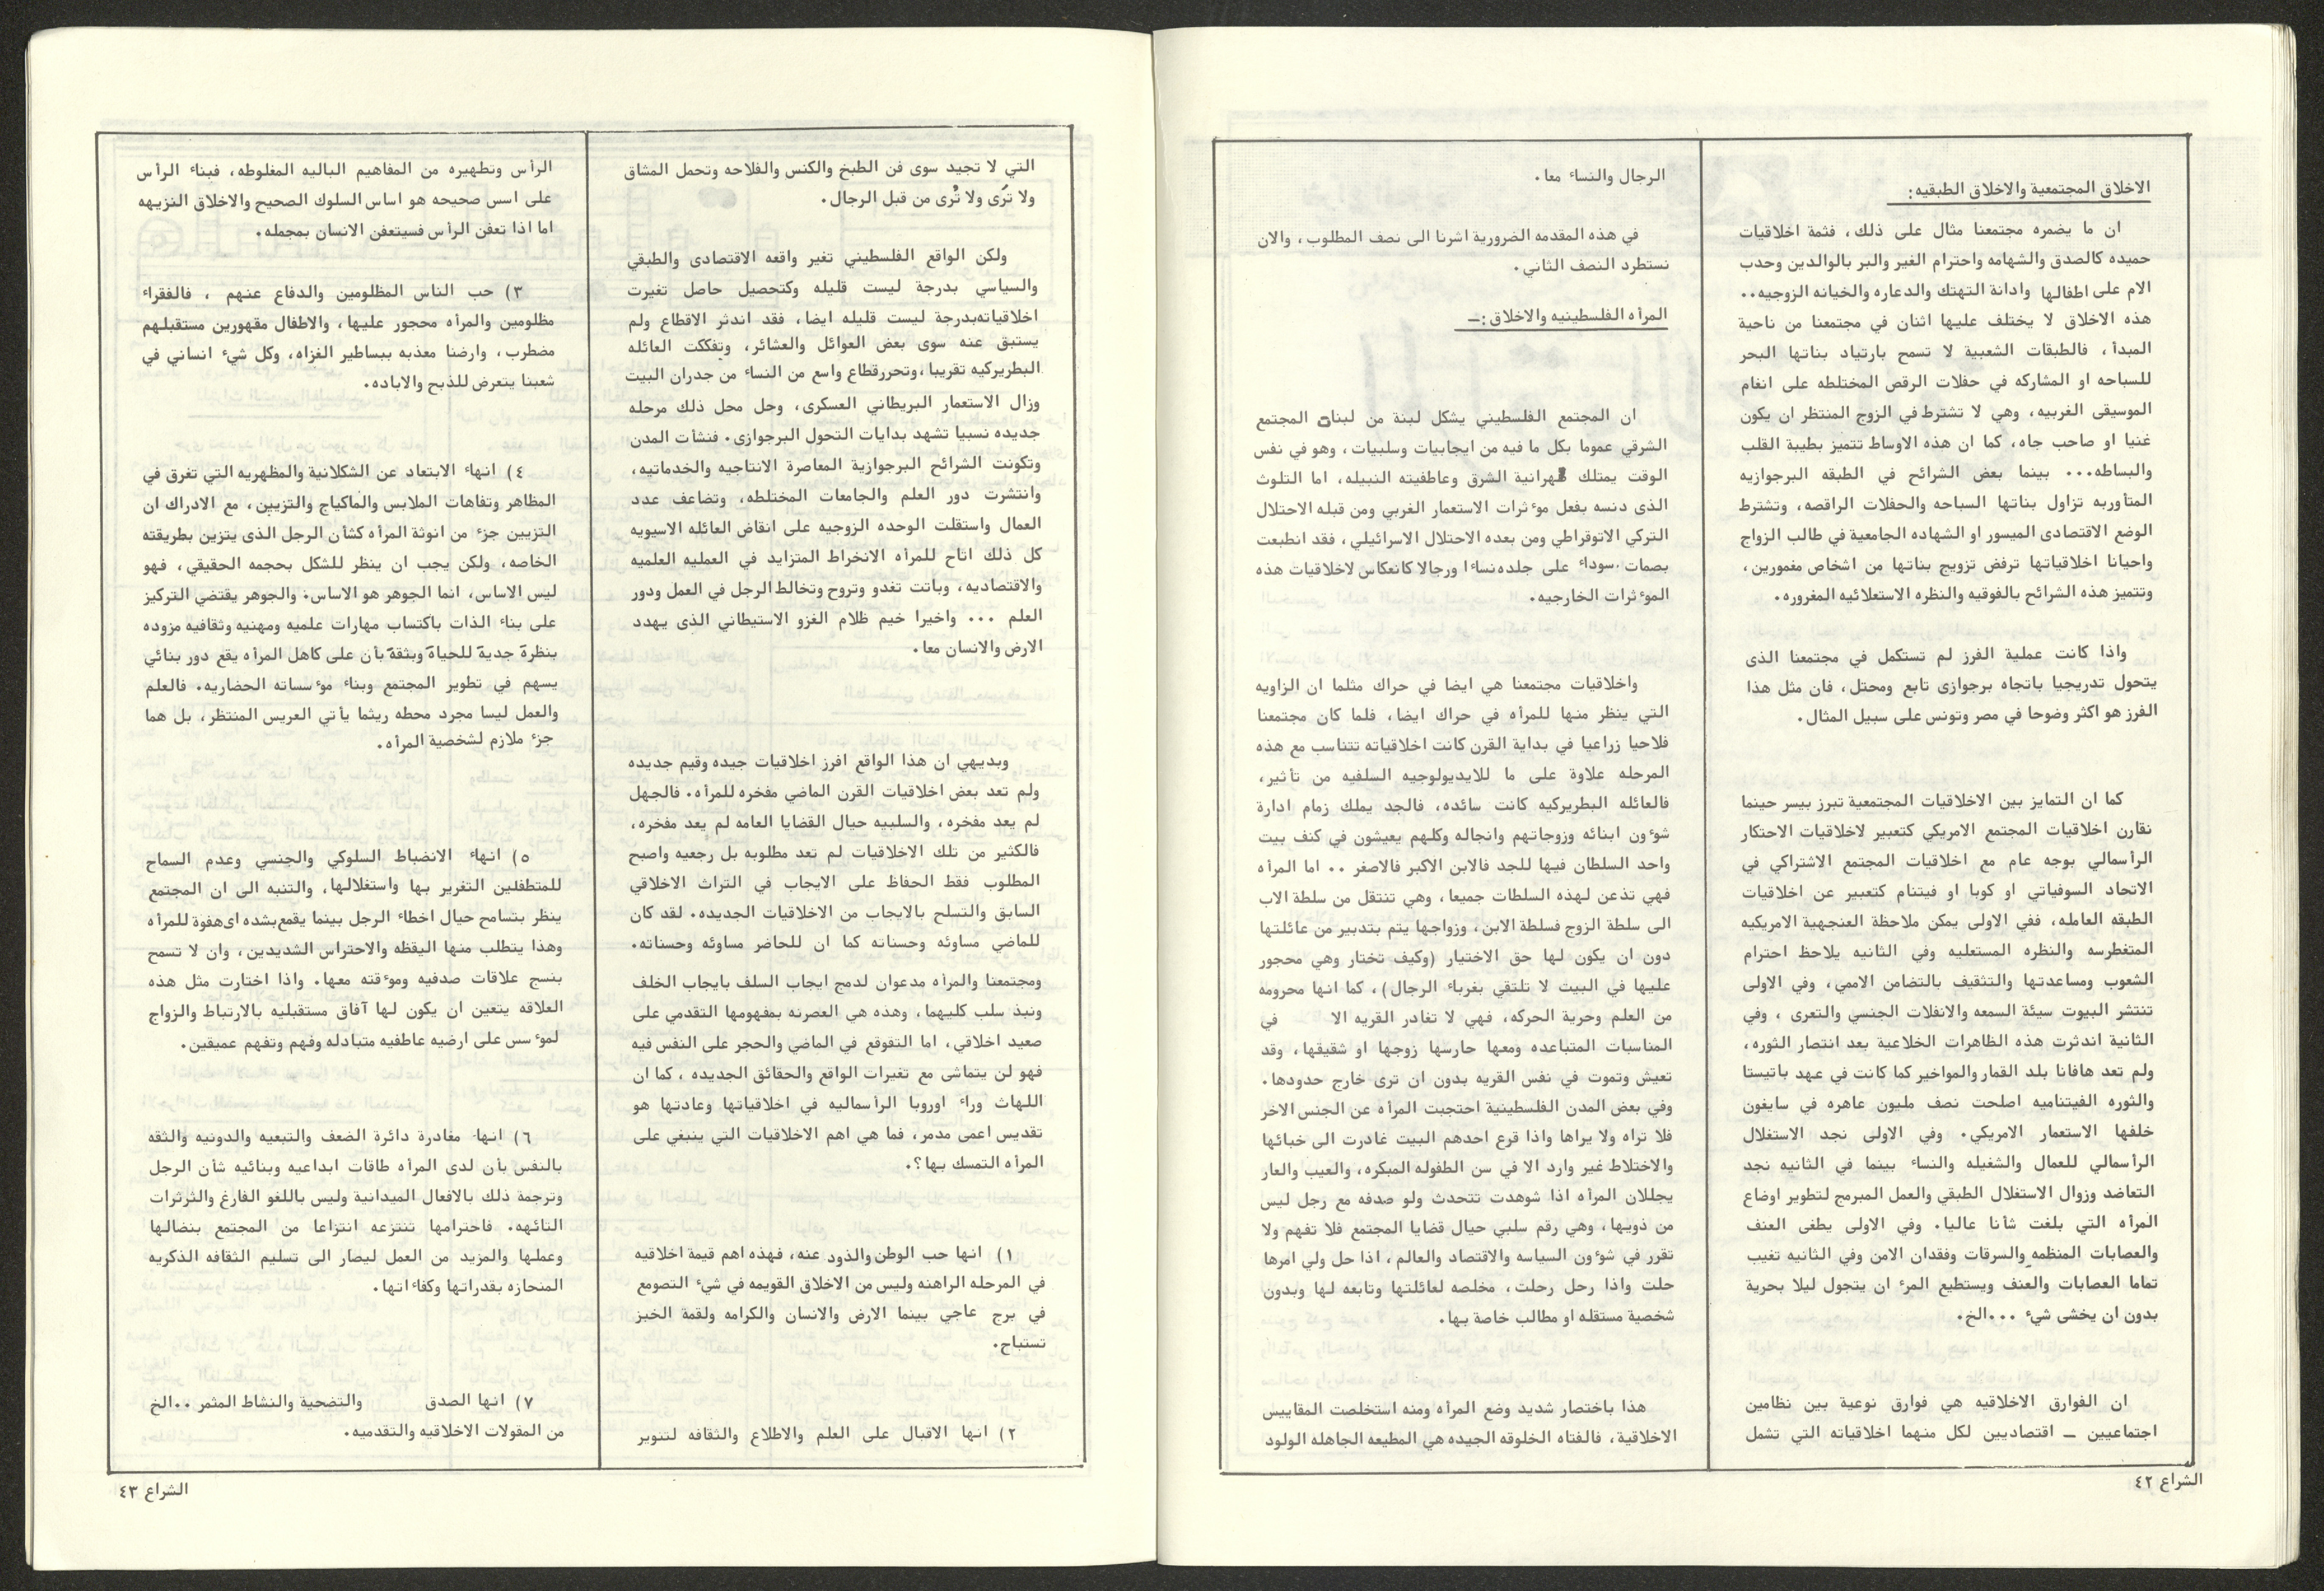 الاخلاق المجتمعية والاخلاق الطبقيه:
ان ما يضمره مجتمعنا مثال على ذلك، فثمة اخلاقيات
حميده كالصدق والشهامه واحترام الغير والبر بالوالدين وحدب
الام على اطفالها وادانة التهتك والدعاره والخيانه الزوجيه..
هذه الاخلاق لا يختلف عليها اثنان في مجتمعنا من ناحية
المبدأ، فالطبقات الشعبية لا تسمح بارتياد بناتها البحر
للسباحه او المشاركه في حفلات الرقص المختلطه على انغام
الموسيقى الغربيه، وهي لا تشترط في الزوج المنتظر ان يكون
غنيا او صاحب جاه، كما ان هذه الاوساط تتميز بطيبة القلب
والبساطه... بينما بعض الشرائح في الطبقه البرجوازيه
المتأوربه تزاول بناتها السباحه والحفلات الراقصه، وتشترط
الوضع الاقتصادى الميسور او الشهاده الجامعية في طالب الزواج
واحيانا اخلاقياتها ترفض تزويج بناتها من اشخاص مغمورين،
وتتميز هذه الشرائح بالفوقيه والنظره الاستعلائيه المغروره.
واذا كانت عملية الفرز لم تستكمل في مجتمعنا الذى
يتحول تدريجيا باتجاه برجوازى تابع ومحتل، فان مثل هذا
الفرز هو اكثر وضوحا في مصر وتونس على سبيل المثال.
كما ان التمايز بين الاخلاقيات المجتمعية تبرز بيسر حينما
نقارن اخلاقيات المجتمع الامريكي كتعبير لاخلاقيات الاحتكار
الرأسمالي بوجه عام مع اخلاقيات المجتمع الاشتراكي في
الاتحاد السوفياتي او كوبا او فيتنام كتعبير عن اخلاقيات
الطبقه العامله، ففي الاولى يمكن ملاحظة العنجهية الامريكيه
المتغطرسه والنظره المستعليه وفي الثانيه يلاحظ احترام
الشعوب ومساعدتها والتثقيف بالتضامن الاممي، وفي الاولى
تنتشر البيوت سيئة السمعه والانفلات الجنسي والتعرى ، وفي
الثانية اندثرت هذه الظاهرات الخلاعية بعد انتصار الثوره،
ولم تعد هافانا بلد القمار والمواخير كما كانت في عهد باتيستا
والثوره الفيتناميه اصلحت نصف مليون عاهره في سايغون
خلفها الاستعمار الامريكي. وفي الاولى نجد الاستغلال
الرأسمالي للعمال والشغيله والنساء بينما في الثانيه نجد
التعاضد وزوال الاستغلال الطبقي والعمل المبرمج لتطوير اوضاع
المرأه التي بلغت شأنا عاليا. وفي الاولى يطغى العنف
والعصابات المنظمه والسرقات وفقدان الامن وفي الثانيه تغيب
تماما العصابات والعنف ويستطيع المرء ان يتجول ليلا بحرية
بدون ان يخشى شيء ...الخ.
ان الفوارق الاخلاقيه هي فوارق نوعية بين نظامين
اجتماعيين – اقتصاديين لكل منهما اخلاقياته التي تشمل
الرجال والنساء معا.
في هذه المقدمه الضرورية اشرنا الى نصف المطلوب، والان
نستطرد النصف الثاني.
المرأه الفلسطينيه والاخلاق:–
ان المجتمع الفلسطيني يشكل لبنة من لبنات المجتمع
الشرقي عموما بكل ما فيه من ايجابيات وسلبيات، وهو في نفس
الوقت يمتلك الشرق وعاطفيته النبيله، اما التلوث
الذى دنسه بفعل موءثرات الاستعمار الغربي ومن قبله الاحتلال
التركي الاتوقراطي ومن بعده الاحتلال الاسرائيلي، فقد انطبعت
بصمات سوداء على جلده نساءا ورجالا كانعكاس لاخلاقيات هذه
الموءثرات الخارجيه.
واخلاقيات مجتمعنا هي ايضا في حراك مثلما ان الزاويه
التي ينظر منها للمرأه في حراك ايضا، فلما كان مجتمعنا
فلاحيا زراعيا في بداية القرن كانت اخلاقياته تتناسب مع هذه
المرحله علاوة على ما للايديولوجيه السلفيه من تأثير،
فالعائله البطريركيه كانت سائده، فالجد يملك زمام ادارة
شوءون ابنائه وزوجاتهم وانجاله وكلهم يعيشون في كنف بيت
واحد السلطان فيها للجد فالابن الاكبر فالاصغر .. اما المرأه
فهي تذعن لهذه السلطات جميعا، وهي تنتقل من سلطة الاب
الى سلطة الزوج فسلطة الابن، وزواجها يتم بتدبير من عائلتها
دون ان يكون لها حق الاختيار (وكيف تختار وهي محجور
عليها في البيت لا تلتقي بغرباء الرجال)، كما انها محرومه
من العلم وحرية الحركه، فهي لا تغادر القريه الا في
المناسبات المتباعده ومعها حارسها زوجها او شقيقها، وقد
تعيش وتموت في نفس القريه بدون ان ترى خارج حدودها.
وفي بعض المدن الفلسطينية احتجبت المرأه عن الجنس الاخر
فلا تراه ولا يراها واذا قرع احدهم البيت غادرت الى خبائها
والاختلاط غير وارد الا في سن الطفوله المبكره، والعيب والعار
يجللان المرأه اذا شوهدت تتحدث ولو صدفه مع رجل ليس
من ذويها، وهي رقم سلبي حيال قضايا المجتمع فلا تفهم ولا
تقرر في شوءون السياسه والاقتصاد والعالم، اذا حل ولي امرها
حلت واذا رحل رحلت، مخلصه لعائلتها وتابعه لها وبدون
شخصية مستقله او مطالب خاصة بها.
هذا باختصار شديد وضع المرأه ومنه استخلصت المقاييس
الاخلاقية، فالفتاه الخلوقه الجيده هي المطيعه الجاهله الولود
الشراع ٤٢
التي لا تجيد سوى فن الطبخ والكنس والفلاحه وتحمل المشاق
ولا تَرى ولا تُرى من قبل الرجال.
ولكن الواقع الفلسطيني تغير واقعه الاقتصادى والطبقي
والسياسي بدرجة ليست قليله وكتحصيل حاصل تغيرت
اخلاقياته بدرجة ليست قليله ايضا، فقد اندثر الاقطاع ولم
يستبق عنه سوى بعض العوائل والعشائر، وتفككت العائله
البطريركيه تقريبا، وتحرر قطاع واسع من النساء من جدران البيت
وزال الاستعمار البريطاني العسكرى، وحل محل ذلك مرحله
جديده نسبيا تشهد بدايات التحول البرجوازى. فنشأت المدن
وتكونت الشرائح البرجوازية المعاصرة الانتاجيه والخدماتيه،
وانتشرت دور العلم والجامعات المختلطه، وتضاعف عدد
العمال واستقلت الوحده الزوجيه على انقاض العائله الاسيويه
كل ذلك اتاح للمرأه الانخراط المتزايد في العمليه العلميه
والاقتصاديه، وباتت تغدو وتروح وتخالط الرجل في العمل ودور
العلم ... واخيرا خيم ظلام الغزو الاستيطاني الذى يهدد
الارض والانسان معا.
وبديهي ان هذا الواقع افرز اخلاقيات جيده وقيم جديده
ولم تعد بعض اخلاقيات القرن الماضي مفخره للمرأه. فالجهل
لم يعد مفخره، والسلبيه حيال القضايا العامه لم يعد مفخره،
فالكثير من تلك الاخلاقيات لم تعد مطلوبه بل رجعيه واصبح
المطلوب فقط الحفاظ على الايجاب في التراث الاخلاقي
السابق والتسلح بالايجاب من الاخلاقيات الجديده. لقد كان
للماضي مساوئه وحسناته كما ان للحاضر مساوئه وحسناته.
ومجتمعنا والمرأه مدعوان لدمج ايجاب السلف بايجاب الخلف
ونبذ سلب كليهما، وهذه هي العصرنه بمفهومها التقدمي على
صعيد اخلاقي، اما التقوقع في الماضي والحجر على النفس فيه
فهو لن يتماشى مع تغيرات الواقع والحقائق الجديده ، كما ان
اللهاث وراء اوروبا الرأسماليه في اخلاقياتها وعادتها هو
تقديس اعمى مدمر، فما هي اهم الاخلاقيات التي ينبغي على
المرأه التمسك بها؟.
١) انها حب الوطن والذود عنه، فهذه اهم قيمة اخلاقيه
في المرحله الراهنه وليس من الاخلاق القويمه في شيء التصومع
في برج عاجي بينما الارض والانسان والكرامه ولقمة الخبز
تستباح.
٢) انها الاقبال على العلم والاطلاع والثقافه لتنوير
الرأس وتطهيره من المفاهيم الباليه المغلوطه، فبناء الرأس
على اسس صحيحه هو اساس السلوك الصحيح والاخلاق النزيهه
اما اذا تعفن الرأس فسيتعفن الانسان بمجمله.
٣) حب الناس المظلومين والدفاع عنهم ، فالفقراء
مظلومين والمرأه محجور عليها، والاطفال مقهورين مستقبلهم
مضطرب، وارضنا معذبه ببساطير الغزاه، وكل شيء انساني في
شعبنا يتعرض للذبح والاباده.
٤) انهاء الابتعاد عن الشكلانية والمظهريه التي تغرق في
المظاهر وتفاهات الملابس والماكياج والتزيين، مع الادراك ان
التزيين جزء من انوثة المرأه كشأن الرجل الذى يتزين بطريقته
الخاصه، ولكن يجب ان ينظر للشكل بحجمه الحقيقي، فهو
ليس الاساس، انما الجوهر هو الاساس. والجوهر يقتضي التركيز
على بناء الذات باكتساب مهارات علميه ومهنيه وثقافيه مزوده
بنظرة جدية للحياة وبثقة بأن على كاهل المرأه يقع دور بنائي
يسهم في تطوير المجتمع وبناء موءسساته الحضاريه. فالعلم
والعمل ليسا مجرد محطه ريثما يأتي العريس المنتظر، بل هما
جزء ملازم لشخصية المرأه.
٥) انهاء الانضباط السلوكي والجنسي وعدم السماح
للمتطفلين التغرير بها واستغلالها، والتنبه الى ان المجتمع
ينظر بتسامح حيال اخطاء الرجل بينما يقمع بشده اى هفوة للمرأه
وهذا يتطلب منها اليقظه والاحتراس الشديدين، وان لا تسمح
بنسج علاقات صدفيه وموءقته معها. واذا اختارت مثل هذه
العلاقه يتعين ان يكون لها آفاق مستقبليه بالارتباط والزواج
لموءسس على ارضيه عاطفيه متبادله وفهم وتفهم عميقين.
٦) انها مغادرة دائرة الضعف والتبعيه والدونيه والثقه
بالنفس بأن لدى المرأه طاقات ابداعيه وبنائيه شأن الرجل
وترجمة ذلك بالافعال الميدانية وليس باللغو الفارغ والثرثرات
التائهه. فاحترامها تنتزعه انتزاعا من المجتمع بنضالها
وعملها والمزيد من العمل ليصار الى تسليم الثقافه الذكريه
المنحازه بقدراتها وكفاءاتها.
٧) انها الصدق والتضحية والنشاط المثمر ..الخ
من المقولات الاخلاقيه والتقدميه.
الشراع ٤٣